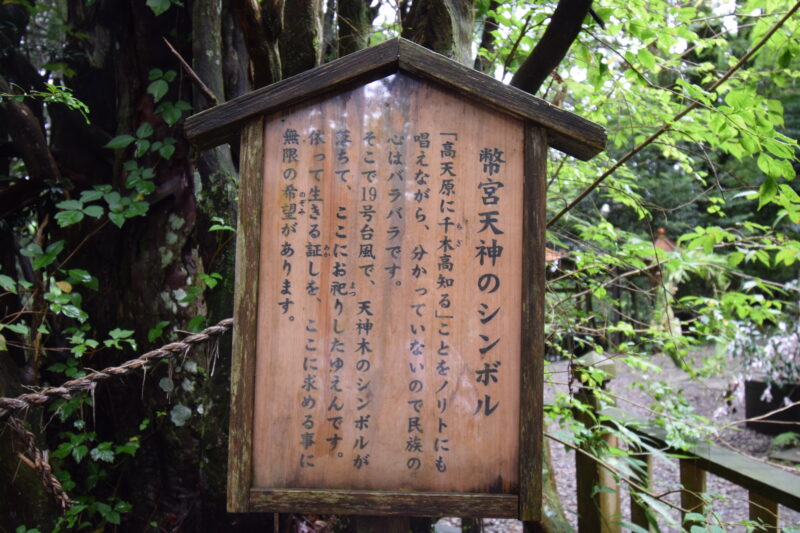 幣宮天神のシンボル
「高天原に千木高知る」ことをノリトにも
唱えながら、分かっていないので民族の
心はバラバラです。
そこで19号台風で、天神木のシンボルが
落ちて、ここにお祀りしたゆえんです。
依って生きる証しを、ここに求める事に
無限の希望があります。